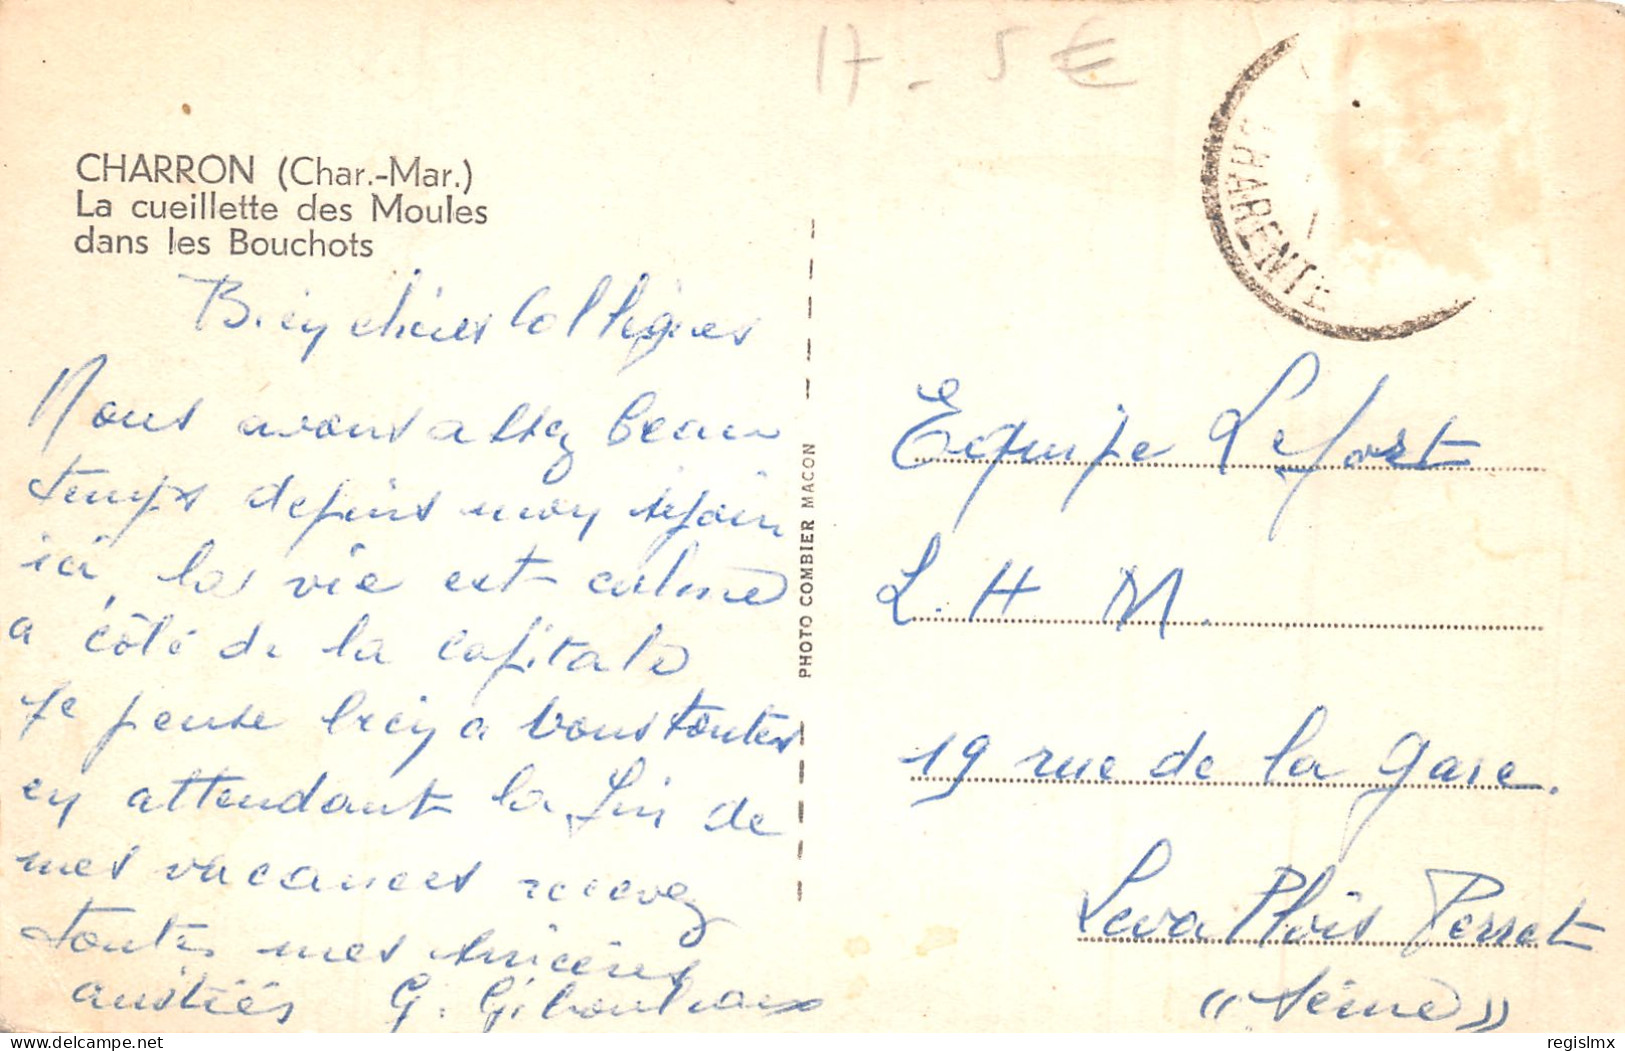 17 - 5 €
CHARENTE
CHARRON (Char.-Mar.)
La cueillette des Moules
dans les Bouchots
Bien chères Collègues
Nous avons assez beau
temps depuis mon séjour
ici, la vie est calme
a côté de la capitale
Je pense bien a vous toutes
en attendant la fin de
mes vacances recevez
toutes mes sincères
amitiés G.
PHOTO COMBIER MACON
Equipe Lefort
L. H M.
19 rue de la gare.
Levallois Perret
"Seine"
regislmx